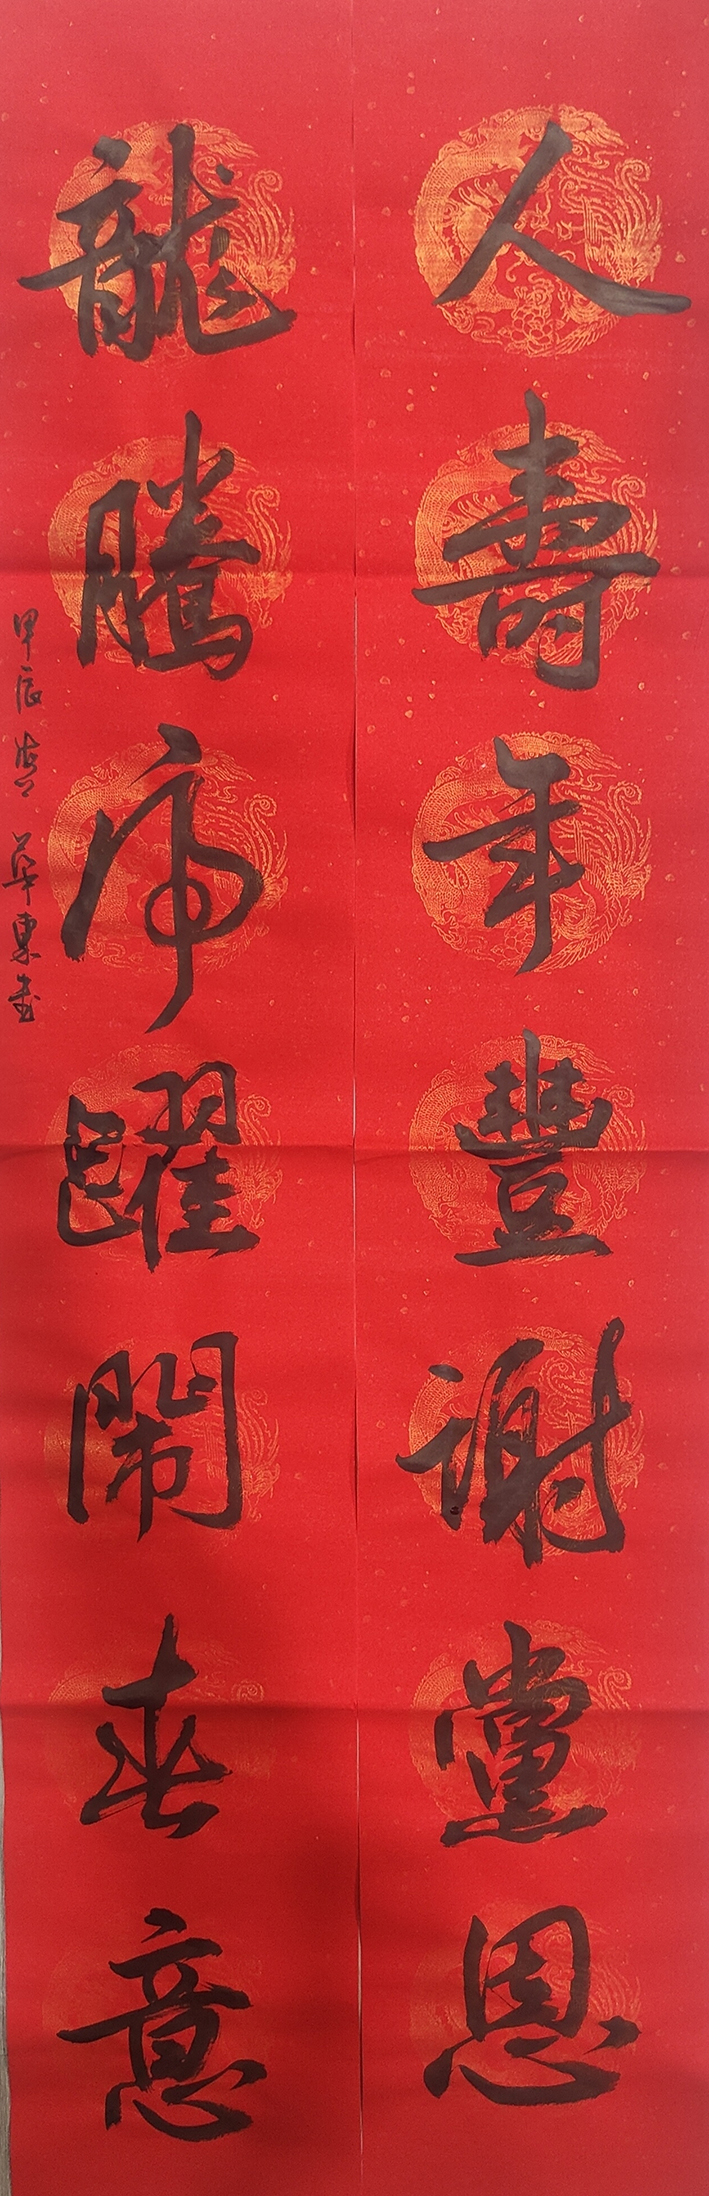 人壽年豐謝黨恩
龍騰虎躍鬧春意
甲辰春華東書